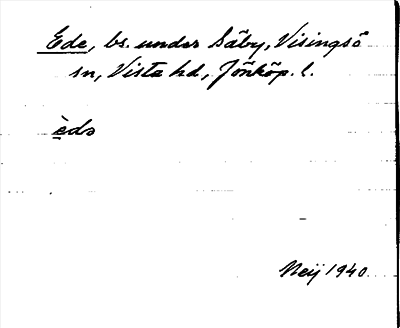 Ede, bs. under Säby, Visingsö
sn, Vista hd, Jönköp. l.
èdɘ
Neij 1940